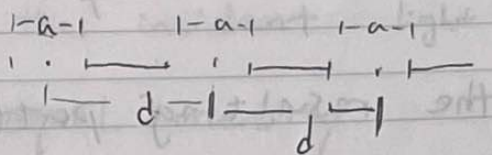 |-a-| |-a-| |-a-|
|— d —| — d —|